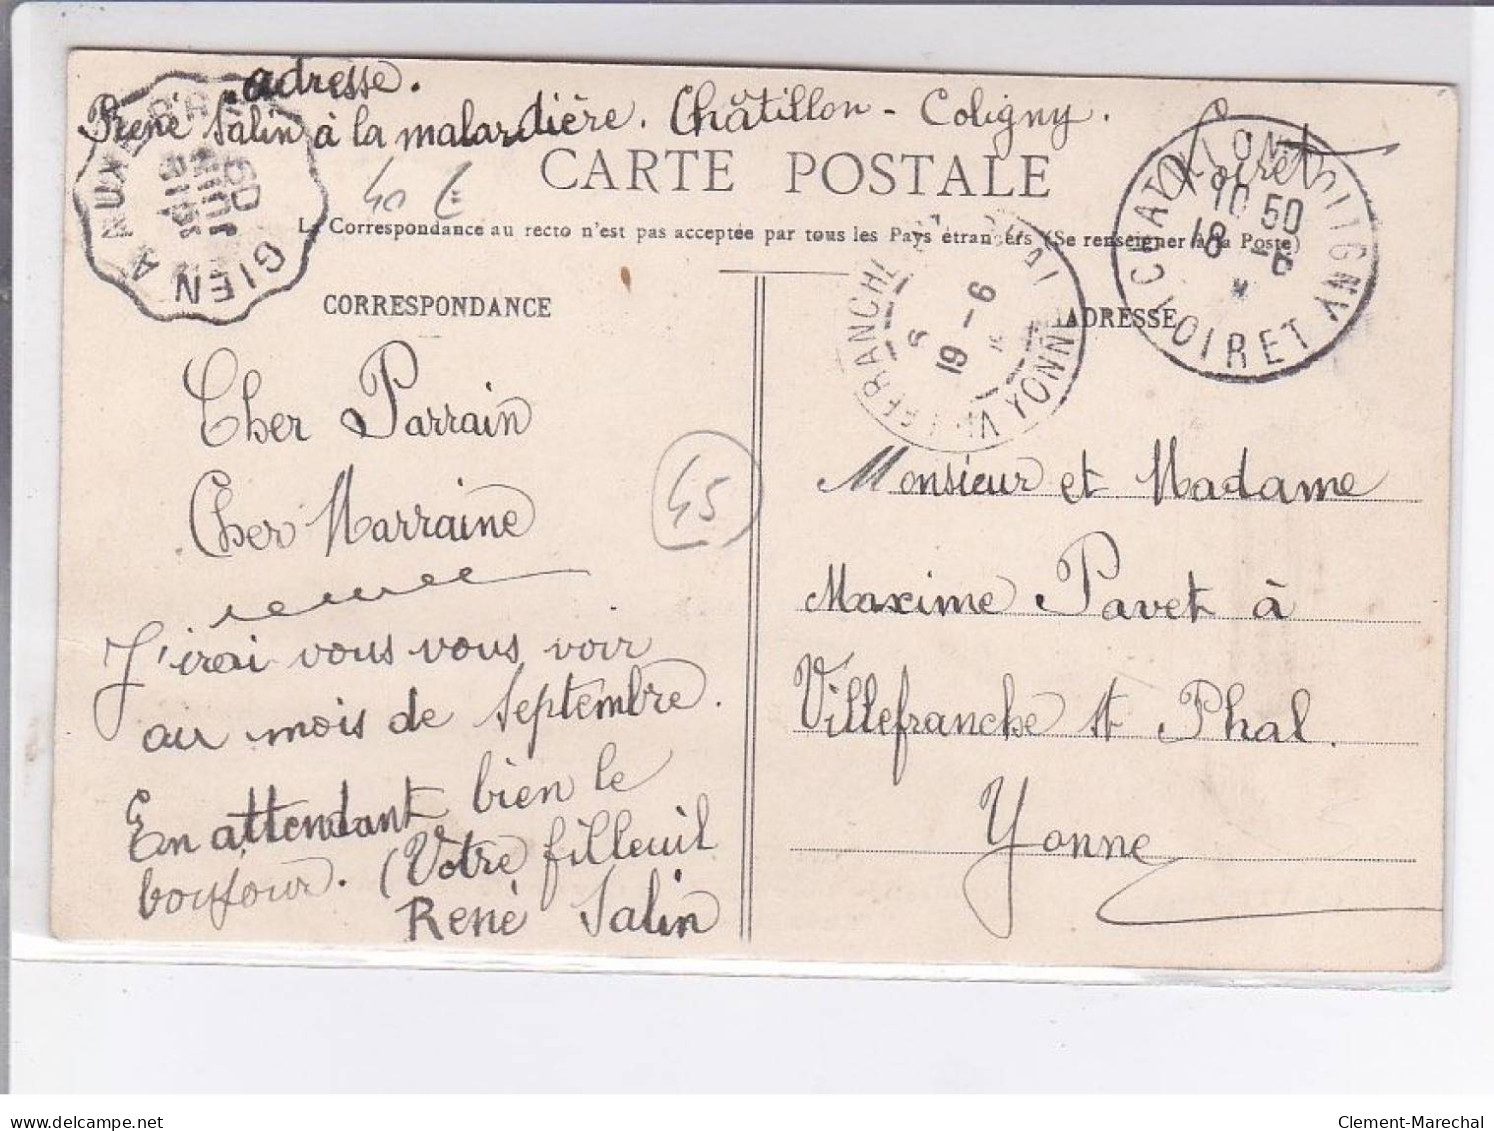 adresse.
René Salin à la malardière. Châtillon - Coligny.
Loiret
CARTE POSTALE
La Correspondance au recto n'est pas acceptée par tous les Pays étrangers (Se renseigner à la Poste)
40 €
AUXERRE
GIEN A
CHATILLON COLIGNY
10 50
18 -6
LOIRET
VILLEFRANCHE
19 -6
YONNE
CORRESPONDANCE
ADRESSE
Cher Parrain
Cher Marraine
45
J'irai vous vous voir
au mois de Septembre.
En attendant bien le
boujour. (Votre filleuil
René Salin
Monsieur et Madame
Maxime Pavet à
Villefranche St Phal.
Yonne
Clement-Marechal
delcampe.net